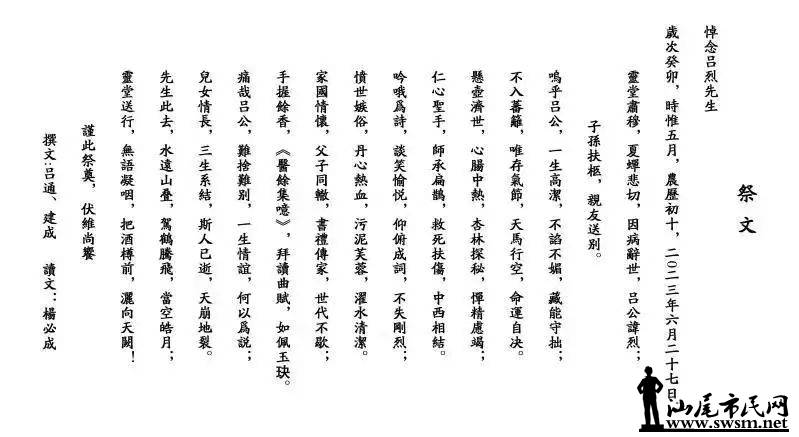 祭文
悼念吕烈先生
歲次癸卯，時惟五月，農歷初十，二〇二三年六月二十七日，
靈堂肅穆，夏蟬悲切，因病辭世，吕公諱烈；
子孫扶柩，親友送别。
嗚乎吕公，一生高潔，不諂不媚，藏能守拙；
不入蕃籬，唯存氣節，天馬行空，命運自决。
懸壺濟世，心腸中熱，杏林探秘，憚精慮竭；
仁心聖手，師承扁鵲，救死扶傷，中西相結。
吟哦爲詩，談笑愉悦，仰俯成詞，不失剛烈；
憤世嫉俗，丹心熱血，污泥芙蓉，濯水清潔。
家國情懷，父子同轍，書禮傳家，世代不歇；
手握餘香，《醫餘集噫》，拜讀曲賦，如佩玉玦。
痛哉吕公，難捨難别，一生情誼，何以爲説；
兒女情長，三生系結，斯人已逝，天崩地裂。
先生此去，水遠山叠，駕鶴騰飛，當空皓月；
靈堂送行，無語凝咽，把酒樽前，灑向天闕！
謹此祭奠，伏維尚饗
撰文：吕通、建成 讀文：楊必成
汕尾市民网
www.swsm.net